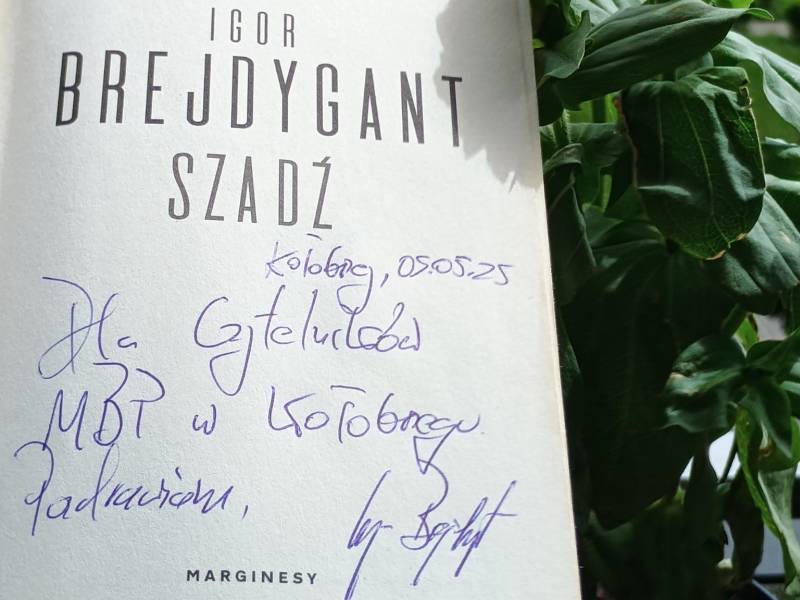 IGOR
BREJDYGANT
SZADŹ
Kołobrzeg, 05.05.25
Dla Czytelników
MBP w Kołobrzegu
Pozdrawiam,
MARGINESY